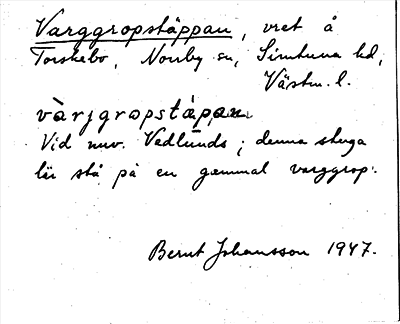 Varggropstäppan, vret å
Torskebo, Norrby sn, Simtuna hd,
Västm. l.
vàrjgropstäpan
Vid nuv. Vedlunds; denna stuga
lär stå på en gammal varggrop.
Bernt Johansson 1947.